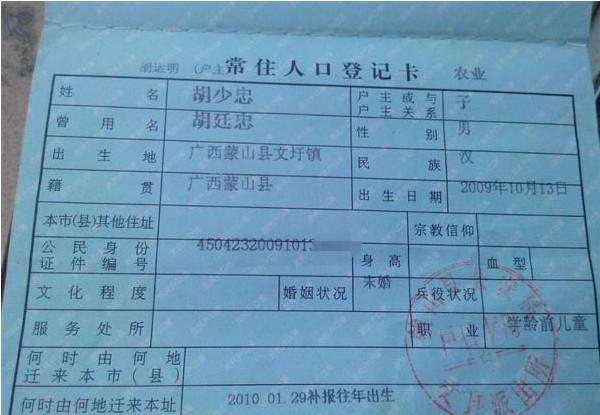 胡运明 (户主 常住人口登记卡 农业
姓名 胡少忠 户主或与户主关系 子
曾用名 胡廷忠 性别 男
出生地 广西蒙山县文圩镇 民族 汉
籍贯 广西蒙山县 出生日期 2009年10月13日
本市(县)其他住址 宗教信仰
公民身份证件编号 45042320091013 身高 血型
文化程度 婚姻状况 未婚 兵役状况
服务处所 职业 学龄前儿童
何时由何地迁来本市(县)
何时由何地迁来本址 2010.01.29补报往年出生